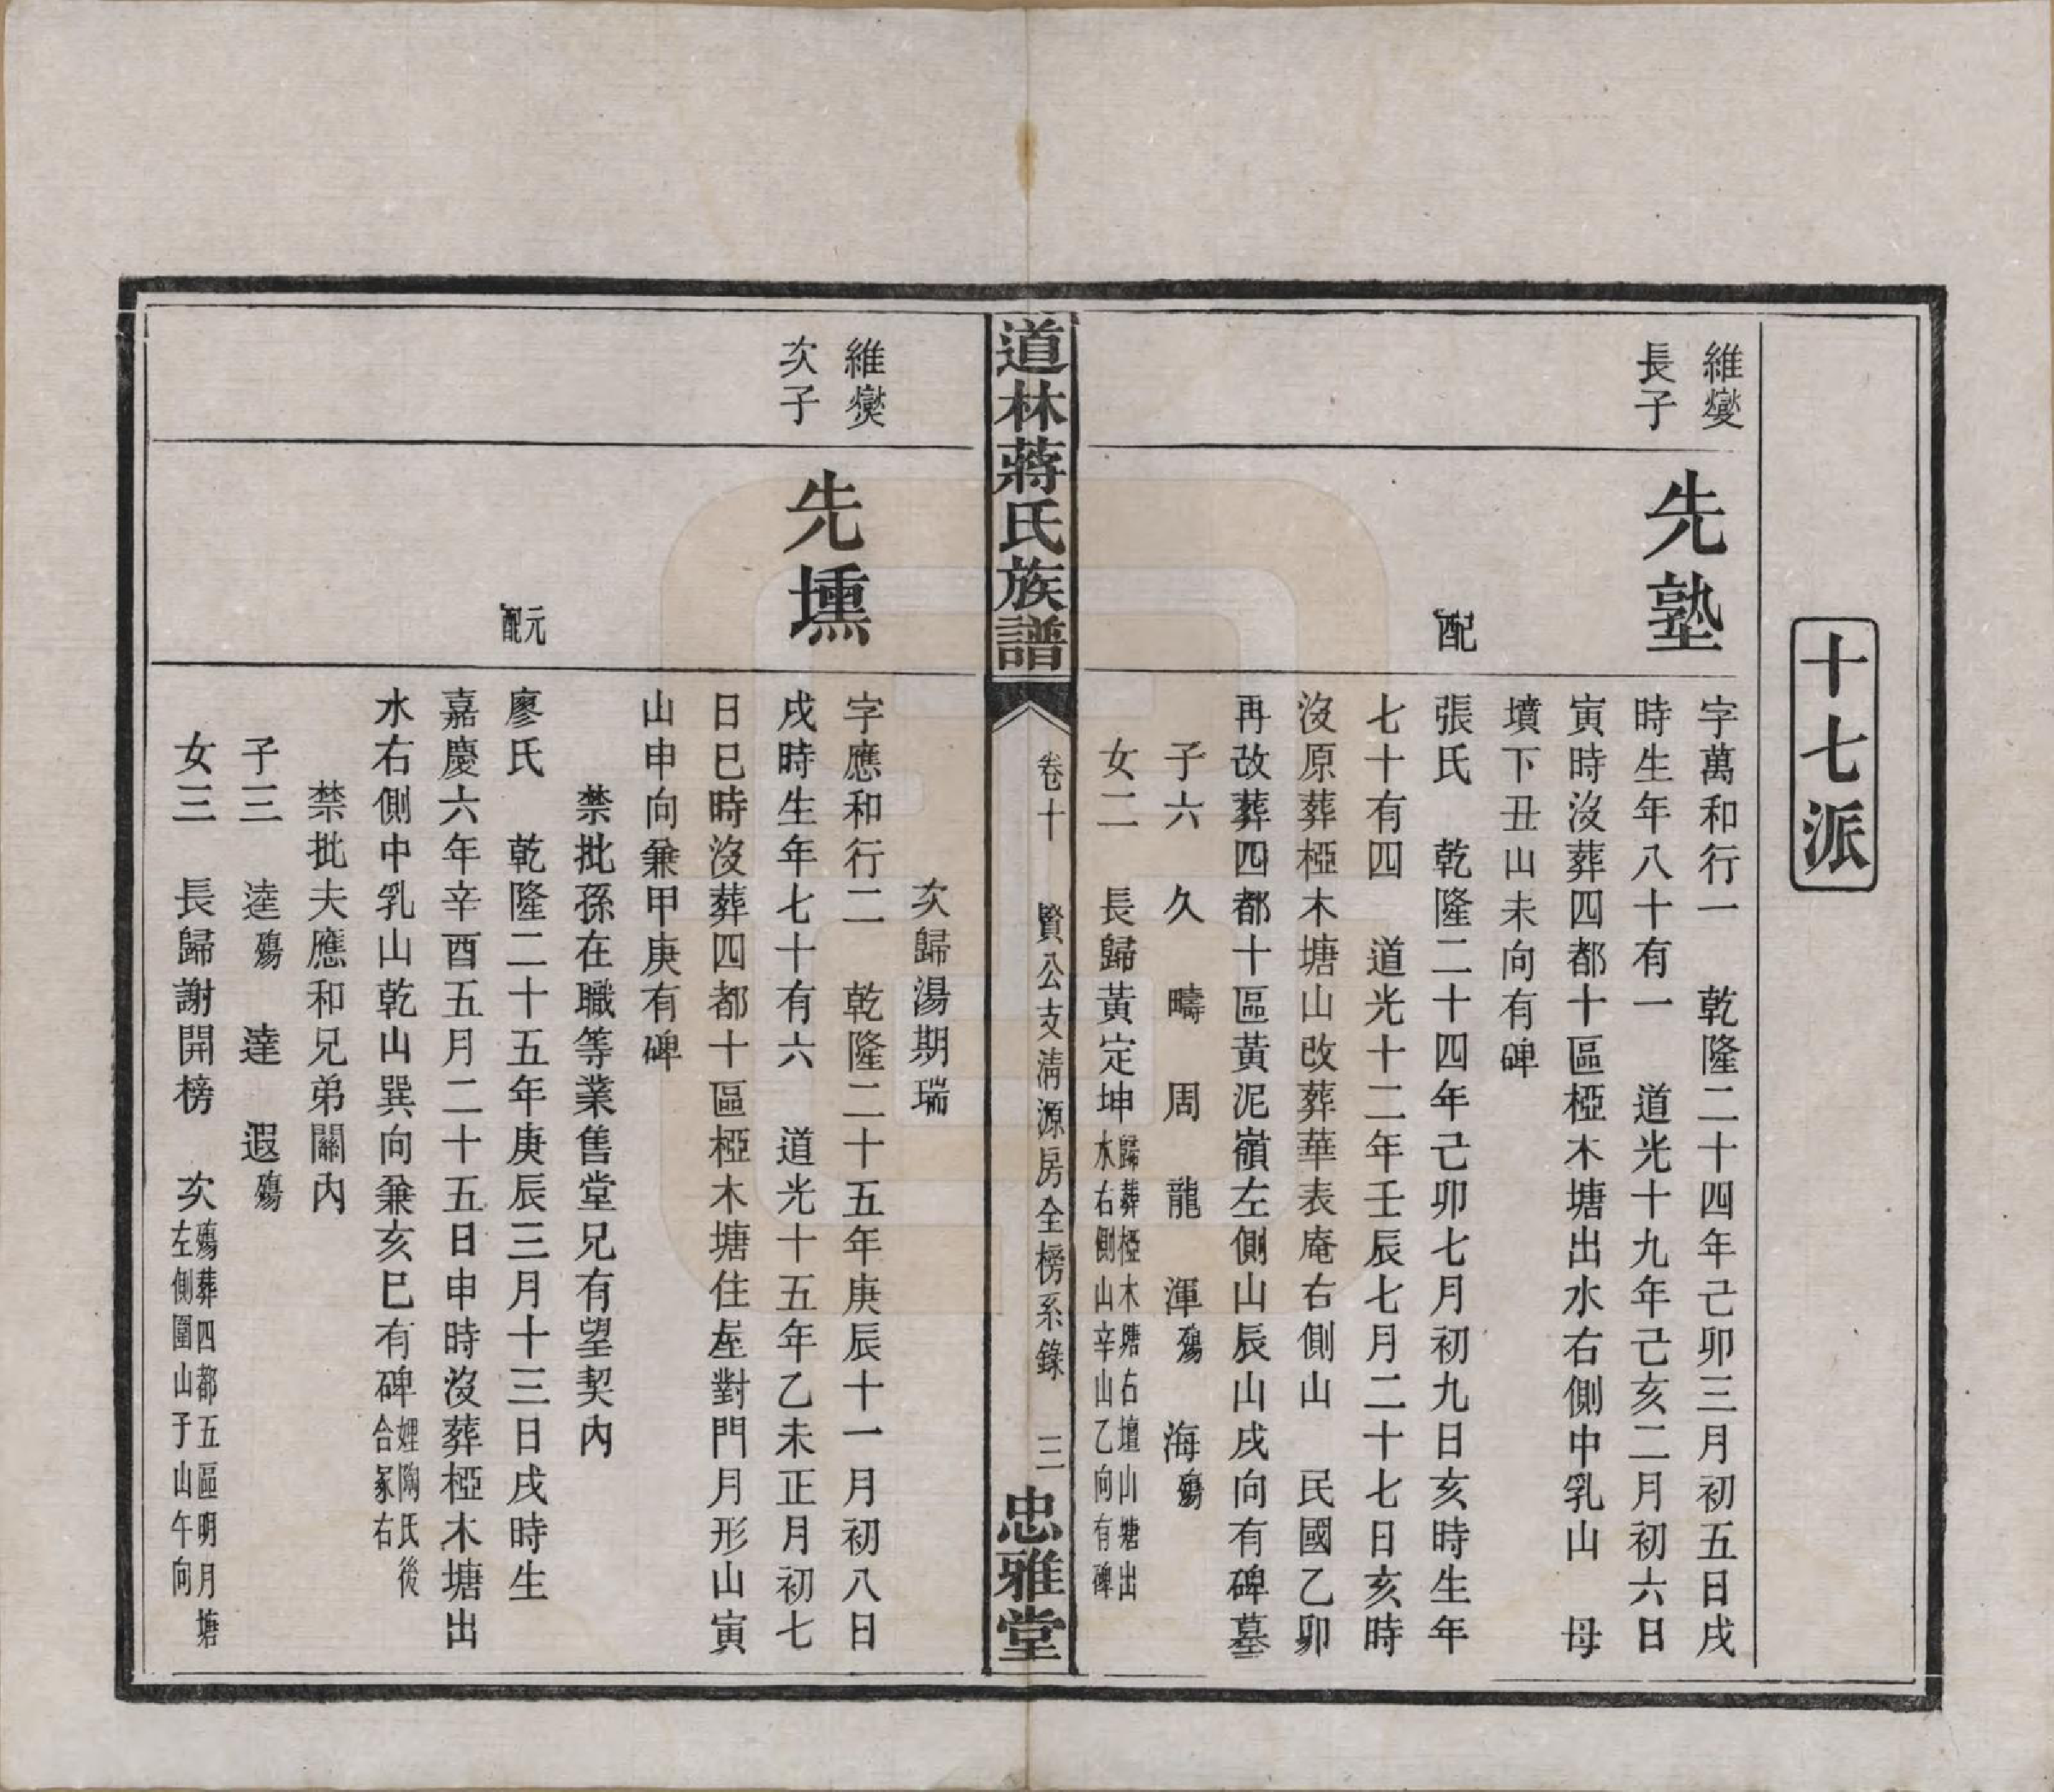 十七派
維燮
長子
先塾
字萬和行一　乾隆二十四年己卯三月初五日戌
時生年八十有一　道光十九年己亥二月初六日
寅時沒葬四都十區椏木塘出水右側中乳山　母
墳下丑山未向有碑
配
張氏　乾隆二十四年己卯七月初九日亥時生年
七十有四　道光十二年壬辰七月二十七日亥時
沒原葬椏木塘山改葬華表庵右側山　民國乙卯
再改葬四都十區黃泥嶺左側山辰山戌向有碑墓
子六　久　疇　周　龍　渾殤　海殤
女二　長歸黃定坤歸葬椏木塘右壇山塘出
水右側山辛山乙向有碑
道林蔣氏族譜
卷十　賢公支淸源房全榜系錄　三
忠雅堂
次歸湯期瑞
維燮
次子
先壎
字應和行二　乾隆二十五年庚辰十一月初八日
戌時生年七十有六　道光十五年乙未正月初七
日巳時沒葬四都十區椏木塘住屋對門月形山寅
山申向兼甲庚有碑
禁批孫在職等業售堂兄有望契內
元配
廖氏　乾隆二十五年庚辰三月十三日戌時生
嘉慶六年辛酉五月二十五日申時沒葬椏木塘出
水右側中乳山乾山巽向兼亥巳有碑娌陶氏後
合冢右
禁批夫應和兄弟關內
子三　逵殤　達　遐殤
女三　長歸謝開榜　次殤葬四都五區明月塘
左側圍山子山午向